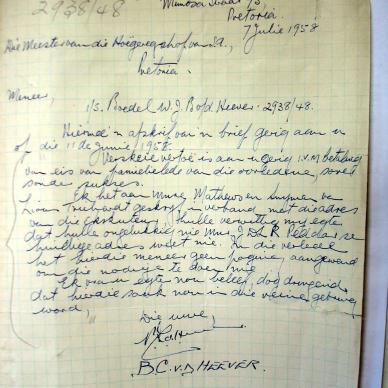 2938/48
Mimosa Straat 75,
Pretoria
7 Julie 1958
Die Meester van die Hooggeregshof van S.A.,
Pretoria.
Meneer,
i/s. Boedel W.J. B. v/d Heever. 2938/48.
Hiermee 'n afskrif van 'n brief gerig aan u
op die 11de Junie 1958.
Verskeie vertoë is aan u gerig i.v.m. betaling
van eis van familielede van die oorledene, sover
sonder sukses.
Ek het aan Mnre Mathews en
van geskryf in verband met die adres
van die Eksekuteur. Hulle verwittig my egter
dat hulle ongelukkig nie Mnr J. R. se
huidige adres weet nie. In die verlede
het hierdie meneer geen poging aangewend
om die nodige te doen nie.
Ek vra u egter nou beleef, dog dringend
dat hierdie saak nou in die reine gebring
word,
Die uwe,
B.C. v.d HEEVER.